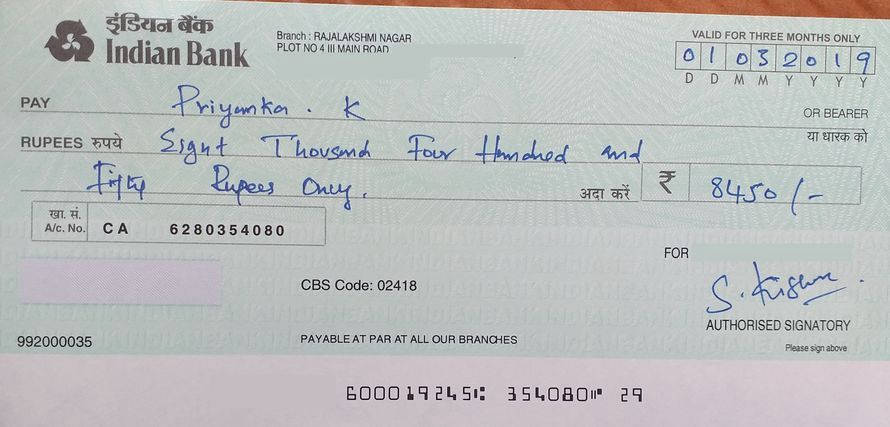 इंडियन बैंक
Indian Bank
Branch : RAJALAKSHMI NAGAR
PLOT NO 4 III MAIN ROAD
VALID FOR THREE MONTHS ONLY
0 1 0 3 2 0 1 9
D D M M Y Y Y Y
PAY Priyanka . K OR BEARER
या धारक को
RUPEES रुपये Eight Thousand Four Hundred and
Fifty Rupees Only. अदा करें ₹ 8450/-
खा. सं.
A/c. No. CA 6280354080
FOR
CBS Code: 02418
S. Krishna
AUTHORISED SIGNATORY
Please sign above
992000035 PAYABLE AT PAR AT ALL OUR BRANCHES
600019245⑆ 354080⑈ 29